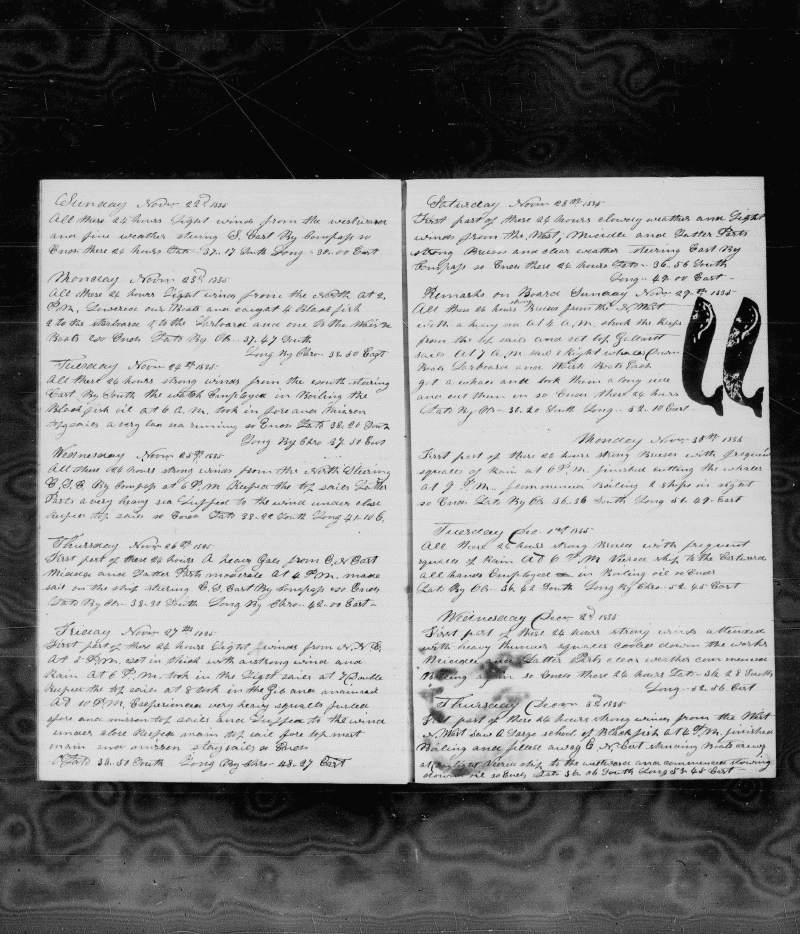 Sunday Novr 22d 1885
All these 24 hours Light winds from the westward
and fine weather steering S. East By Compass so
Ends these 24 hours Latt 37.17 South Long 30.00 East
Monday Novr 23d 1885
All these 24 hours Light winds from the North At 2
P.M. Lowered our Boats and caught 4 Blackfish
2 to the starboard 1 to the Larboard and one to the Waist
Boats so Ends Latt By Ob 37.47 South
Long By Chro 33.50 East
Tuesday Novr 24th 1885
All these 24 hours strong winds from the south steering
East By South the watch Employed in Boiling the
Blackfish oil at 6 A.M. took in fore and mizzen
topsails a very bad sea running so Ends Latt 38.20 South
Long By Chro 37.50 East
Wednesday Novr 25th 1885
All these 24 hours strong winds from the North Steering
E.S.E. By Compass at 6 P.M. Reefed the top sails Latter
Parts a very heavy sea Luffed to the wind under close
Reefed top sails so Ends Latt 38.22 South Long 41.10 E.
Thursday Novr 26th 1885
First part of these 24 hours A heavy Gale from E.N. East
Middle and Latter Parts moderate At 4 P.M. made
sail on the ship steering E.S. East By Compass so Ends
Latt By Ob 38.31 South Long By Chro 42.00 East
Friday Novr 27th 1885
First part of these 24 hours Light winds from N.N.E.
At 5 P.M. set in thick with a strong wind and
Rain At 6 P.M. took in the Light sails at 7 Double
Reefed the top sails at 8 took in the Gib and mainsail
At 10 P.M. Experienced very heavy squalls furled
fore and mizzen top sails and Luffed to the wind
under close Reefed main top sail fore top mast
main and mizzen stay sails so Ends
Latt 36.50 South Long By Chro 48.27 East
Saturday Novr 28th 1885
First part of these 24 hours clowdy weather and Light
winds from the West, Middle and Latter Parts
strong Breeses and clear weather steering East By
Compass so Ends these 24 hours Latt 36.56 South
Long 49.00 East
Remarks on Board Sunday Novr 29th 1885
All these 24 hours strong Breeses from the N. West
with a heavy sea At 4 A.M. shook the Reefs
from the top sails and set top Gallant
sails At 7 A.M. saw 2 Right whales Down
Boats Larboard and Waist Boats Each
got a whale and took them along side
and cut them in so Ends these 24 hours
Latt By Ob 36.20 South Long 52.10 East
Monday Novr 30th 1885
First part of these 24 hours strong Breeses with frequent
squalls of Rain at 6 P.M. finished cutting the whales
at 9 P.M. commenced Boiling 2 ships in sight
so Ends Latt By Ob 36.36 South Long 51.49 East
Tuesday Dec 1st 1885
All these 24 hours strong Breeses with frequent
squalls of Rain At 6 P.M. Veered ship to the Eastward
All hands Employed in Boiling oil so Ends
Latt By Ob 36.42 South Long By Chro 52.45 East
Wednesday Decer 2d 1885
First part of these 24 hours strong winds attended
with heavy thunder squalls cooled down the works
Middle and Latter Parts clear weather commenced
Boiling again so Ends these 24 hours Latt 36.28 South
Long 52.56 East
Thursday Decer 3d 1885
First part of these 24 hours strong winds from the West
N. West saw A Large school of Blackfish At 6 P.M. finished
Boiling and filled away E.N. East
at Veered ship to the westward and commenced stowing
down oil so Ends Latt 36.06 South Long 53.45 East